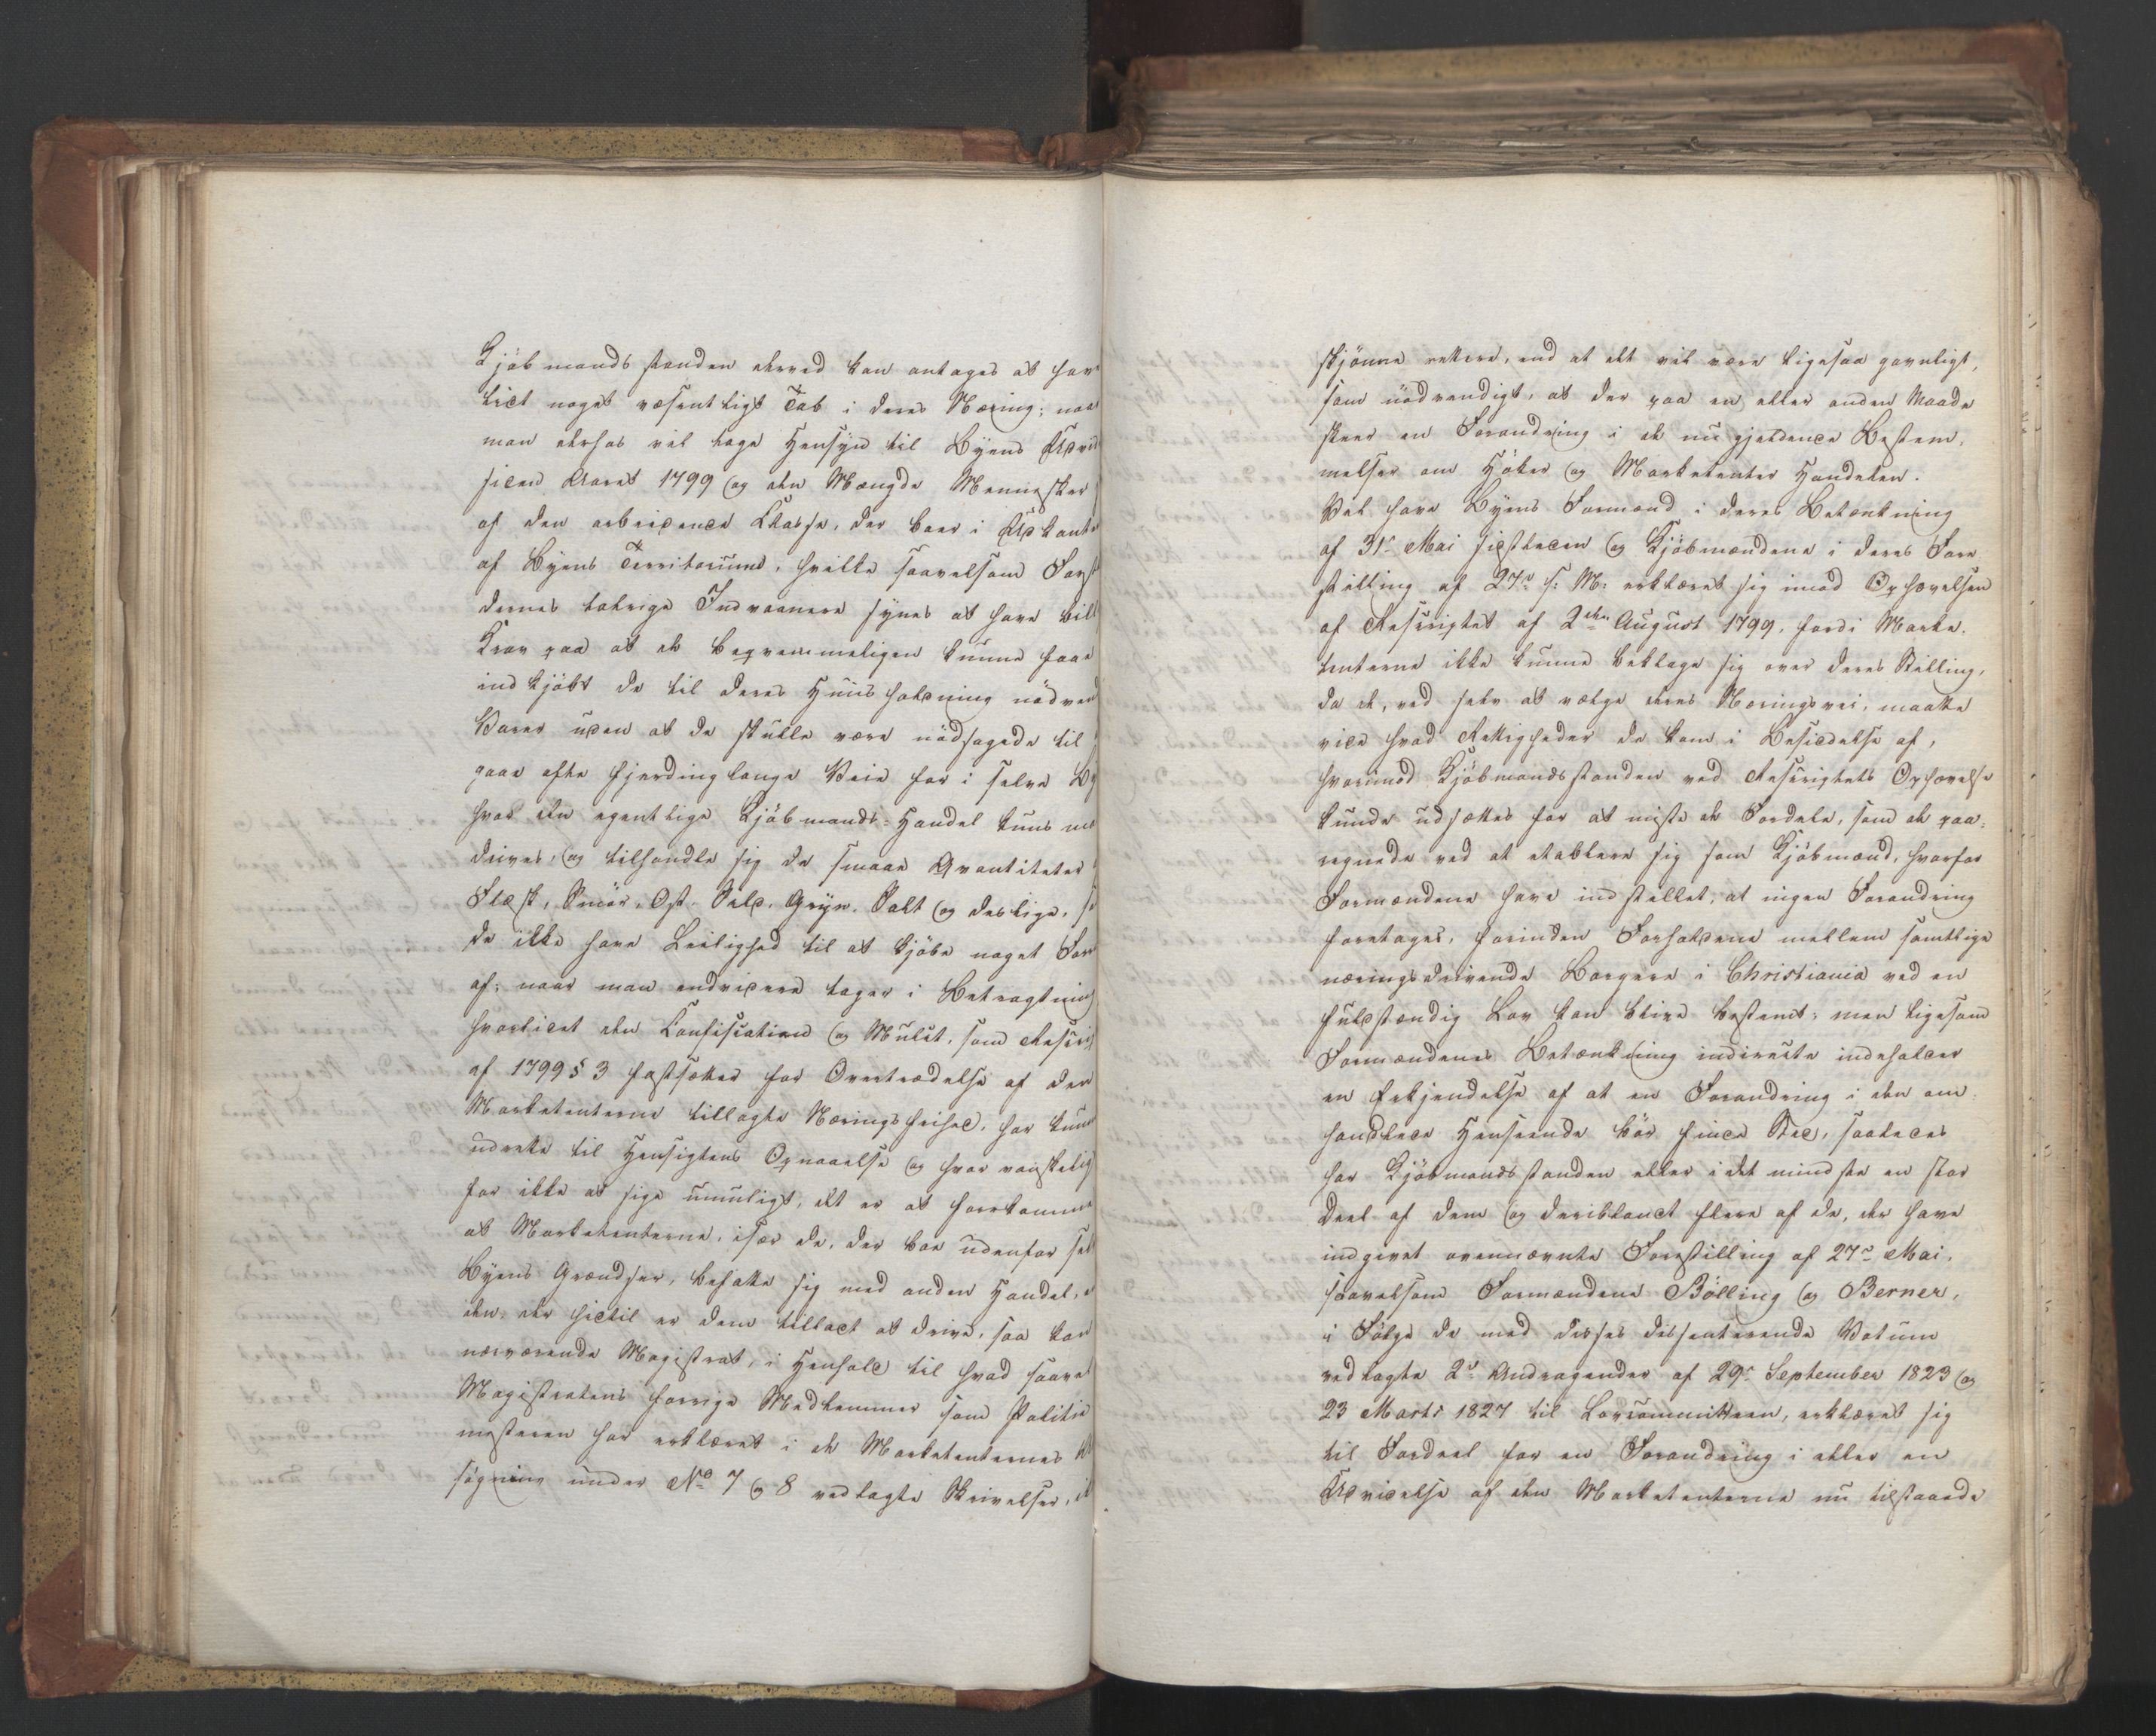 Kjöbmandsstanden derved kan antages at hav
lidt noget væsentligt Tab i deres Næring; naar
man derhos vil tage Hensyn til Byens Udvid
siden Aaret 1799 og den Mængde Mennesker
af den arbeidende Classe, der boer i Udkante
af Byens Territorium, hvilke saavelsom Forst
dernes talrige Indvaanere synes at have bill
Krav paa at de beqvemmeligen kunne faae
indkjöbt de til deres Huusholdning nödvend
Varer uden at de skulle være nödsagede til
gaae ofte fjerdinglange Veie for i selve By
hvor den egentlige Kjöbmands-Handel kuns maa
drives, og tilhandle sig de smaae Qvantiteter
Flæsk, Smör, Ost, Sild, Gryn, Salt og deslige, so
de ikke have Leilighed til at kjöbe noget Forr
af; naar man endvidere tager i Betragtning
hvorlidet den Confiscation og Mulct, som Rescrip
af 1799 § 3 fastsætter for Overtrædelse af den
Marketenterne tillagte Næringsfrihed, har kunn
udrette til Hensigtens Opnaaelse og hvor vanskelig
for ikke at sige umuligt, det er at forekomme
at Marketenterne, især de, der boe udenfor sel
Byens Grændser, befatte sig med anden Handel, e
den, der hidtil er dem tilladt at drive, saa kan
nærværende Magistrat, i Henhold til hvad saavel
Magistratens forrige Medlemmer som Politie
mesteren har erklæret i de Marketenternes An
sögning under No 7 og 8 vedlagte Skrivelser, ik
skjönne rettere, end at det vil være ligesaa gavnligt,
som nödvendigt, at der paa en eller anden Maade
skeer en Forandring i de nu gjeldende Bestem-
melser om Höker og Marketenter Handelen.
Vel have Byens Formænd i deres Betænkning
af 31e Mai sidstleden og Kjöbmændene i deres Fore-
stilling af 27e s: M: erklæret sig imod Ophævelsen
af Rescriptet af 2den August 1799, fordi Marke-
tenterne ikke kunne beklage sig over deres Stilling,
da de, ved selv at vælge deres Næringsvei, maatte
vide hvad Rettigheder de kom i Besiddelse af,
hvorimod Kjöbmandsstanden ved Rescriptets Ophævelse
kunde udsættes for at miste de Fordele, som de paa-
regnede ved at etablere sig som Kjöbmænd, hvorfor
Formændene have indstillet, at ingen Forandring
foretages, forinden Forholdene mellem samtlige
næringsdrivende Borgere i Christiania ved en
fuldstændig Lov kan blive bestemt; men ligesom
Formændenes Betænkning indirecte indeholder
en Erkjendelse af at en Forandring i den om-
handlede Henseende bör finde Sted, saaledes
har Kjöbmandsstanden eller i det mindste en stor
Deel af dem og deriblandt flere af de, der have
indgivet ovennævnte Forestilling af 27e Mai,
saavelsom Formændene Bölling og Berner,
i Fölge de med disses dissenterende Votum
vedlagte 2e Andragender af 29e September 1823 og
23 Marts 1827 til Lovcommitteen, erklæret sig
til Fordeel for en Forandring i eller en
Udvidelse af den Marketenterne nu tilstaaede